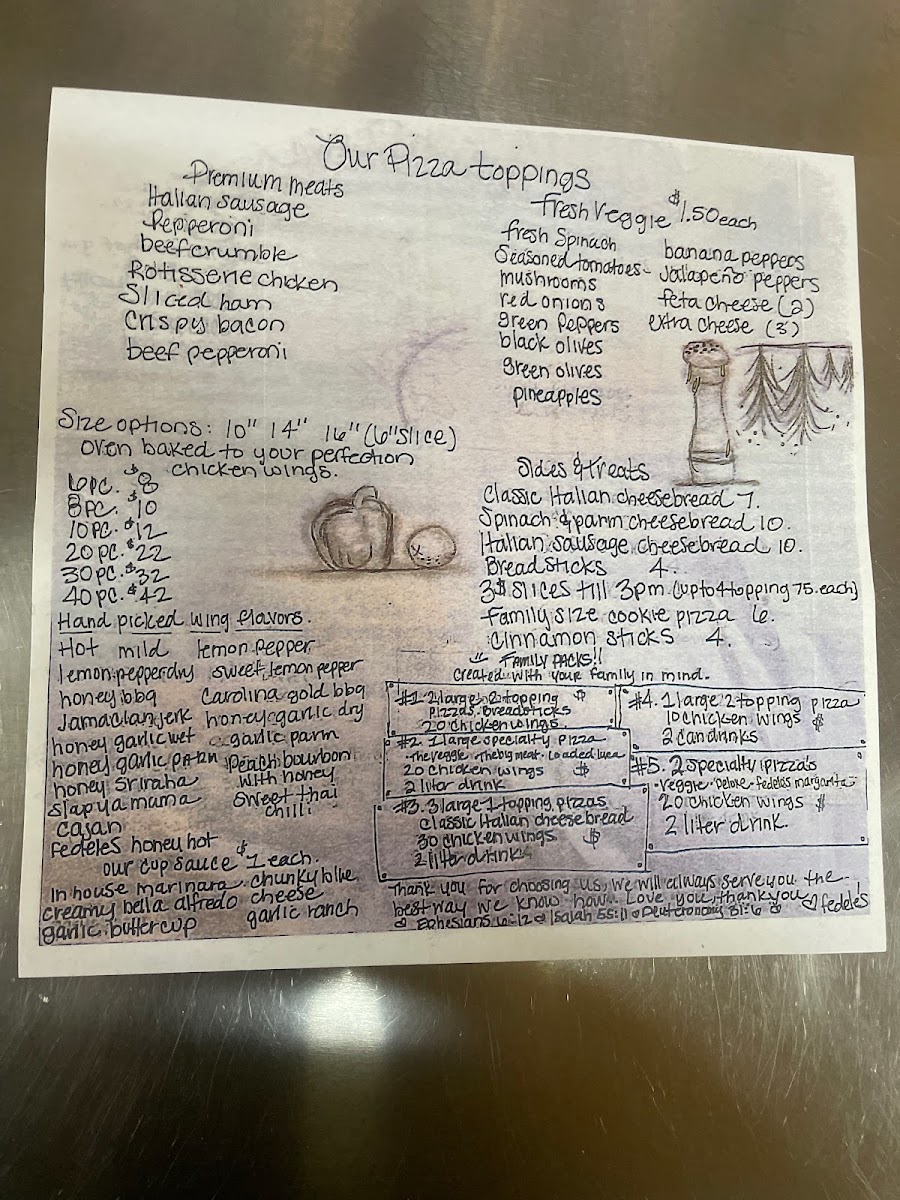 Our Pizza toppings
Premium meats
Italian sausage
Pepiperoni
beefcrumble
Rotisserie chicken
Sliced ham
Crispy bacon
beef pepperoni
fresh Veggie $1.50 each
fresh Spinach
Seasoned tomatoes
mushrooms
red onions
green peppers
black olives
green olives
pineapples
banana peppers
Jallapeño peppers
feta cheese (2)
extra cheese (3)
Size options: 10" 14" 16" (6" slice)
oven baked to your perfection
chicken wings.
6pc. $8
8pc. $10
10pc. $12
20 pc. $22
30 pc. $32
40 pc. $42
Hand picked wing flavors.
Hot mild lemon pepper
lemon pepper dry sweet lemon pepper
honey bbq Carolina gold bbq
Jamacian jerk honey garlic dry
honey garlic wet garlic parm
honey garlic parm peach bourbon
with honey
honey Sriraha
Slap ya mama sweet thai
chilli
Cajan
fedeles honey hot
our cup sauce $1 each.
In house marinara chunky blue
creamy bella alfredo cheese
garlic butter cup garlic ranch
Sides & treats
Classic Italian cheesebread 7.
Spinach & parm cheesebread 10.
Italian sausage cheesebread 10.
Bread sticks 4.
3$ slices till 3pm (up to 4 topping 75. each)
Family size cookie pizza 6.
Cinnamon sticks 4.
Family Packs!!
Created with your family in mind.
#1. 2 large 2 topping $
pizzas. breadsticks
20 chicken wings.
#2. 1 large specialty pizza
• the veggie • the big meat •
20 chicken wings $
2 liter drink
#3. 3 large 1 topping pizzas
classic Italian cheesebread
30 chicken wings $
2 liter drink
#4. 1 large 2 topping pizza
10 chicken wings $
2 can drinks
#5. 2 specialty pizza's
• Veggie • Deluxe • fedeles margarita
20 chicken wings $
2 liter drink.
Thank you for choosing us, we will always serve you the
best way we know how.. Love you, thank you ♡ fedeles
Ephesians 6:12 Isaiah 55:11 Deuteronomy 31:6